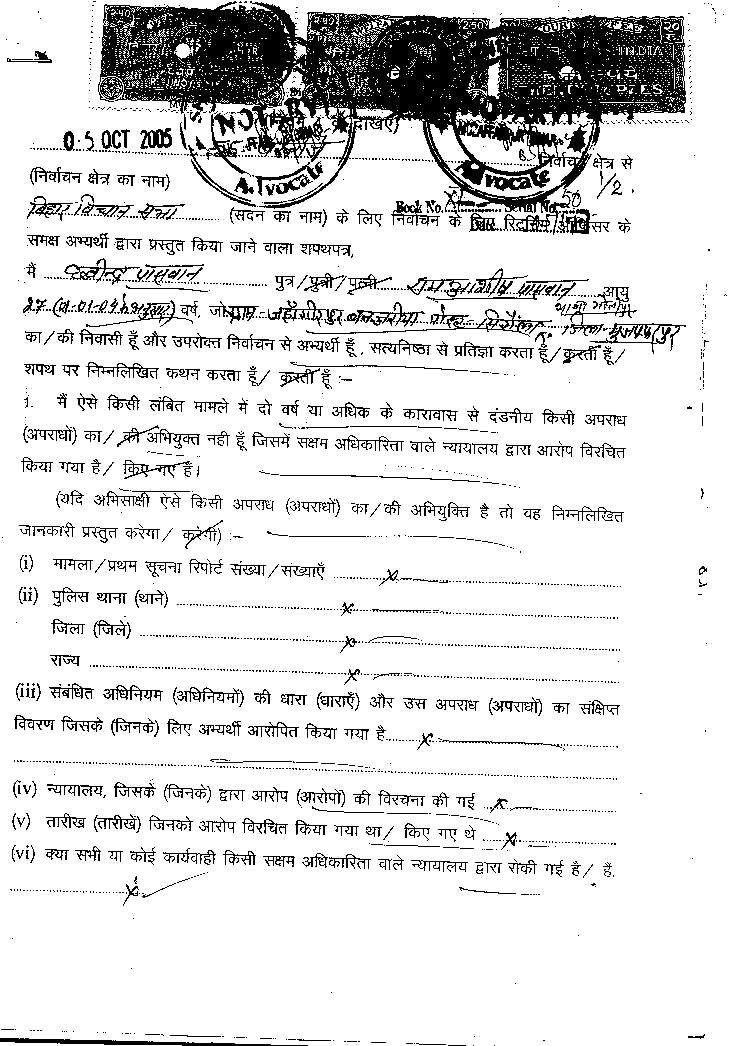 INDIA
NOTARY
NOTARY
Advocate
Advocate
दाखिए)
05 OCT 2005
निर्वाचन क्षेत्र से
(निर्वाचन क्षेत्र का नाम)
1/2.
Book No. XL Serial No. 50
बिहार विधान सभा (सदन का नाम) के लिए निर्वाचन के लिए रिटर्निंग ऑफिसर के
समक्ष अभ्यर्थी द्वारा प्रस्तुत किया जाने वाला शपथपत्र,
मैं पासवान पुत्र/पुत्री/पत्नी राम आशीष पासवान आयु
27 वर्ष, जो ग्राम- पोस्ट- जिला-
का/की निवासी हूँ और उपरोक्त निर्वाचन से अभ्यर्थी हूँ, सत्यनिष्ठा से प्रतिज्ञा करता हूँ/करती हूँ/
शपथ पर निम्नलिखित कथन करता हूँ/ करती हूँ :-
1. मैं ऐसे किसी लंबित मामले में दो वर्ष या अधिक के कारावास से दंडनीय किसी अपराध
(अपराधों) का/ की अभियुक्त नही हूँ जिसमें सक्षम अधिकारिता वाले न्यायालय द्वारा आरोप विरचित
किया गया है/ किए गए हैं।
(यदि अभिसाक्षी ऐसे किसी अपराध (अपराधों) का/की अभियुक्ति है तो वह निम्नलिखित
जानकारी प्रस्तुत करेगा/ करेगी) :-
(i) मामला/प्रथम सूचना रिपोर्ट संख्या/संख्याएँ x
(ii) पुलिस थाना (थाने) x
जिला (जिले) x
राज्य x
(iii) संबंधित अधिनियम (अधिनियमों) की धारा (धाराएँ) और उस अपराध (अपराधों) का संक्षिप्त
विवरण जिसके (जिनके) लिए अभ्यर्थी आरोपित किया गया है x
(iv) न्यायालय, जिसके (जिनके) द्वारा आरोप (आरोपों) की विरचना की गई x
(v) तारीख (तारीखें) जिनको आरोप विरचित किया गया था/ किए गए थे x
(vi) क्या सभी या कोई कार्यवाही किसी सक्षम अधिकारिता वाले न्यायालय द्वारा रोकी गई है/ हैं.
x